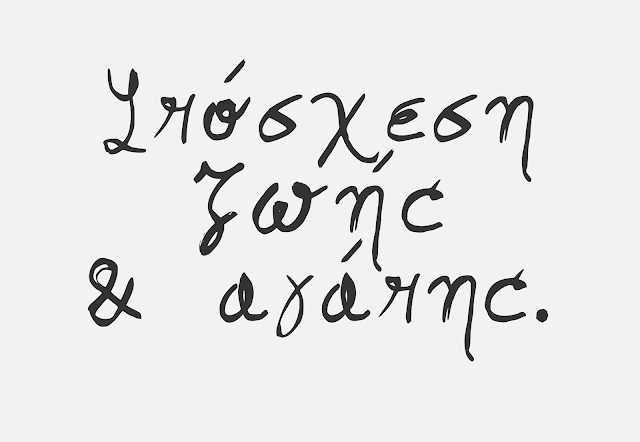 Υπόσχεση
ζωής
& αγάπης.